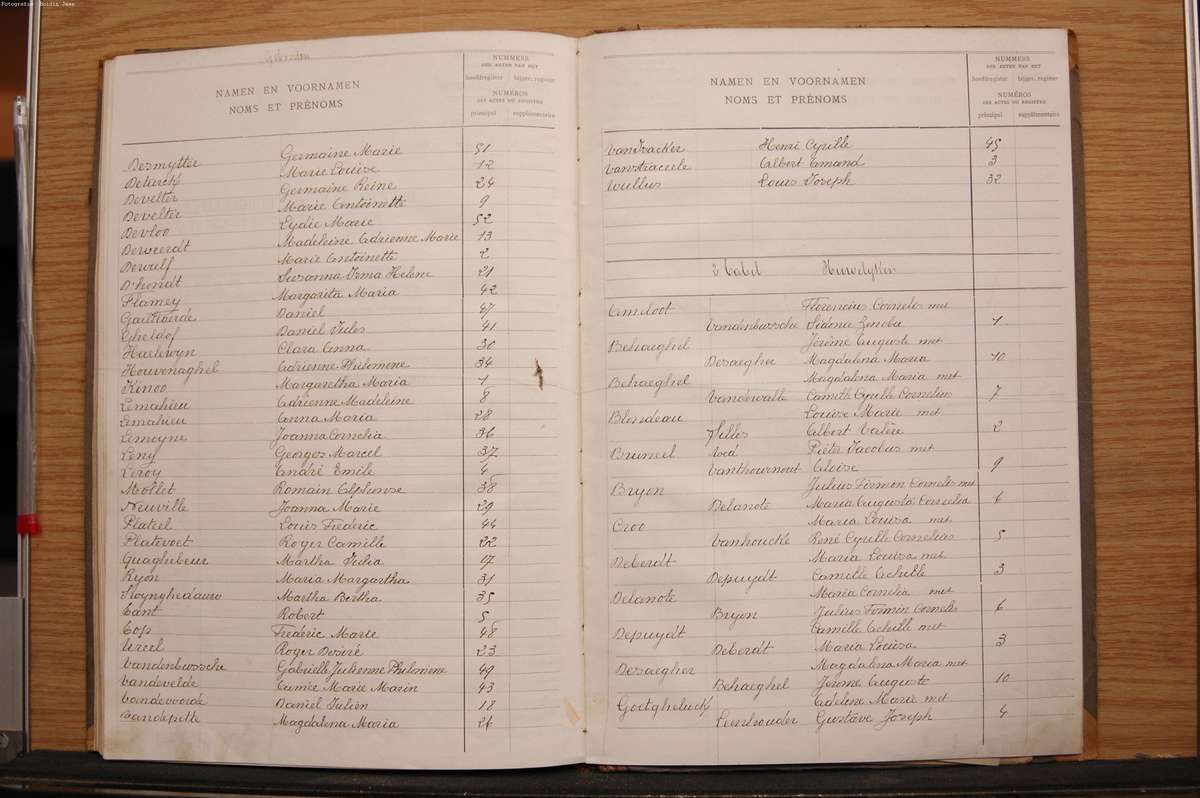 Fotografie: Boidin Jean
NAMEN EN VOORNAMEN
NOMS ET PRÉNOMS
NUMMERS
DER AKTEN VAN HET
hoofdregister bijgev. register
NUMÉROS
DES ACTES DU REGISTRE
principal supplémentaire
Desmytter Germaine Marie 51
Marie Louise 12
Develter Germaine Reine 24
Develter Marie Antoinette 9
Devloo Lydie Marie 52
Deweerdt Madeleine Adrienne Marie 13
Dewulf Marie Antoinette 2
D'hondt Susanna Irma Helene 21
Flamey Margarita Maria 42
Daniel 47
Gheldof Daniel Jules 41
Haelewyn Clara Anna 30
Houvenaghel Adrienne Philomene 34
Kinoo Margaretha Maria 1
Lemahieu Adrienne Madeleine 8
Lemahieu Anna Maria 28
Lemoyne Joanna Cornelia 36
Leny Georges Marcel 37
Leroy André Emile 4
Mollet Romain Alphonse 38
Neuville Joanna Marie 29
Plateel Louis Frederic 44
Platevoet Roger Camille 22
Quaghebeur Martha Julia 17
Ryon Maria Margartha 31
Martha Bertha 35
Tant Robert 5
Top Frederic Marie 48
Ureel Roger Desiré 23
Vandenbussche Gabrielle Julienne Philomene 49
Vandevelde Aimée Marie Marin 43
Vandevoorde Daniel Julien 18
Vandepitte Magdalena Maria 26
NAMEN EN VOORNAMEN
NOMS ET PRÉNOMS
NUMMERS
DER AKTEN VAN HET
hoofdregister bijgev. register
NUMÉROS
DES ACTES DU REGISTRE
principal supplémentaire
Henri Cyrille 45
Vanstraceele Albert Emand 3
Wullus Louis Joseph 32
2 Tabel Huwelyken
Ameloot Florencius Cornelis met
Vandenbussche Sidonie Zenobie 1
Behaeghel Jérôme Auguste met
Desaegher Magdalena Maria 10
Behaeghel Magdalena Maria met
Vandewalle Camille Cyrille Cornelius 7
Blondeau Louise Marie met
Albert Valère 2
Bruneel Pieter Jacobus met
Vanthournout Aloise 9
Bryon Julius Firmon Cornelis met
Delanote Maria Augusta Cornelia 6
Croo Maria Louisa met
Vanhoucke René Cyrille Cornelius 5
Deberdt Maria Louisa met
Depuydt Camille Achille 3
Delanote Maria Cornelia met
Bryon Julius Firmin Cornelis 6
Depuydt Camille Achille met
Deberdt Maria Louisa 3
Desaegher Magdalena Maria met
Behaeghel Jérome Auguste 10
Goetgheluck Adelene Marie met
Leenhouder Gustave Joseph 4